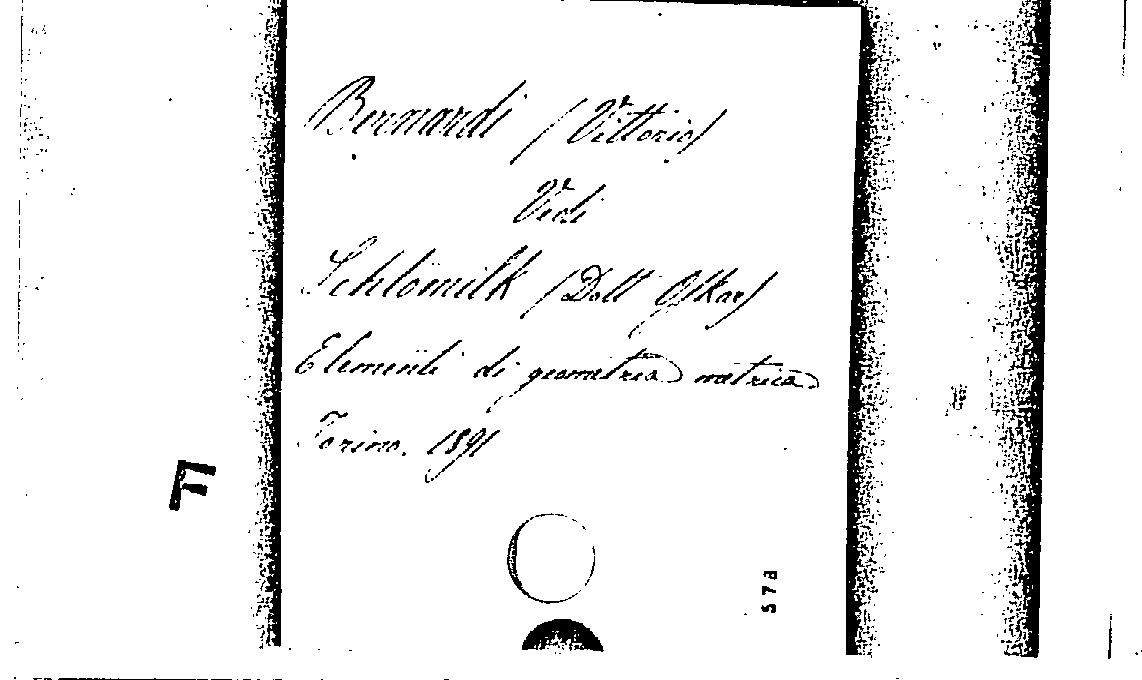 Bernardi (Vittorio)
Vedi
Schlömilk (Dott Oskar)
Elementi di geometria metrica
Torino. 1891
F
57a